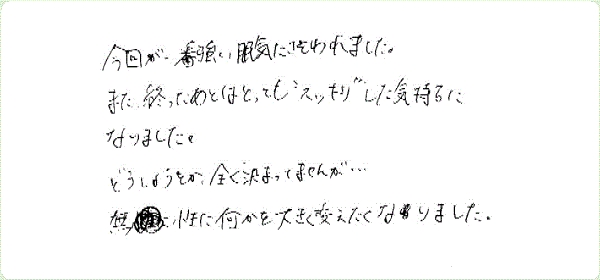 今回が一番強い眠気にさそわれました。
また、終ったあとはとっても"スッキリ"した気持ちに
なりました。
どうしようとか、全く決まってませんが…
無性に何かを大きく変えたくなりました。